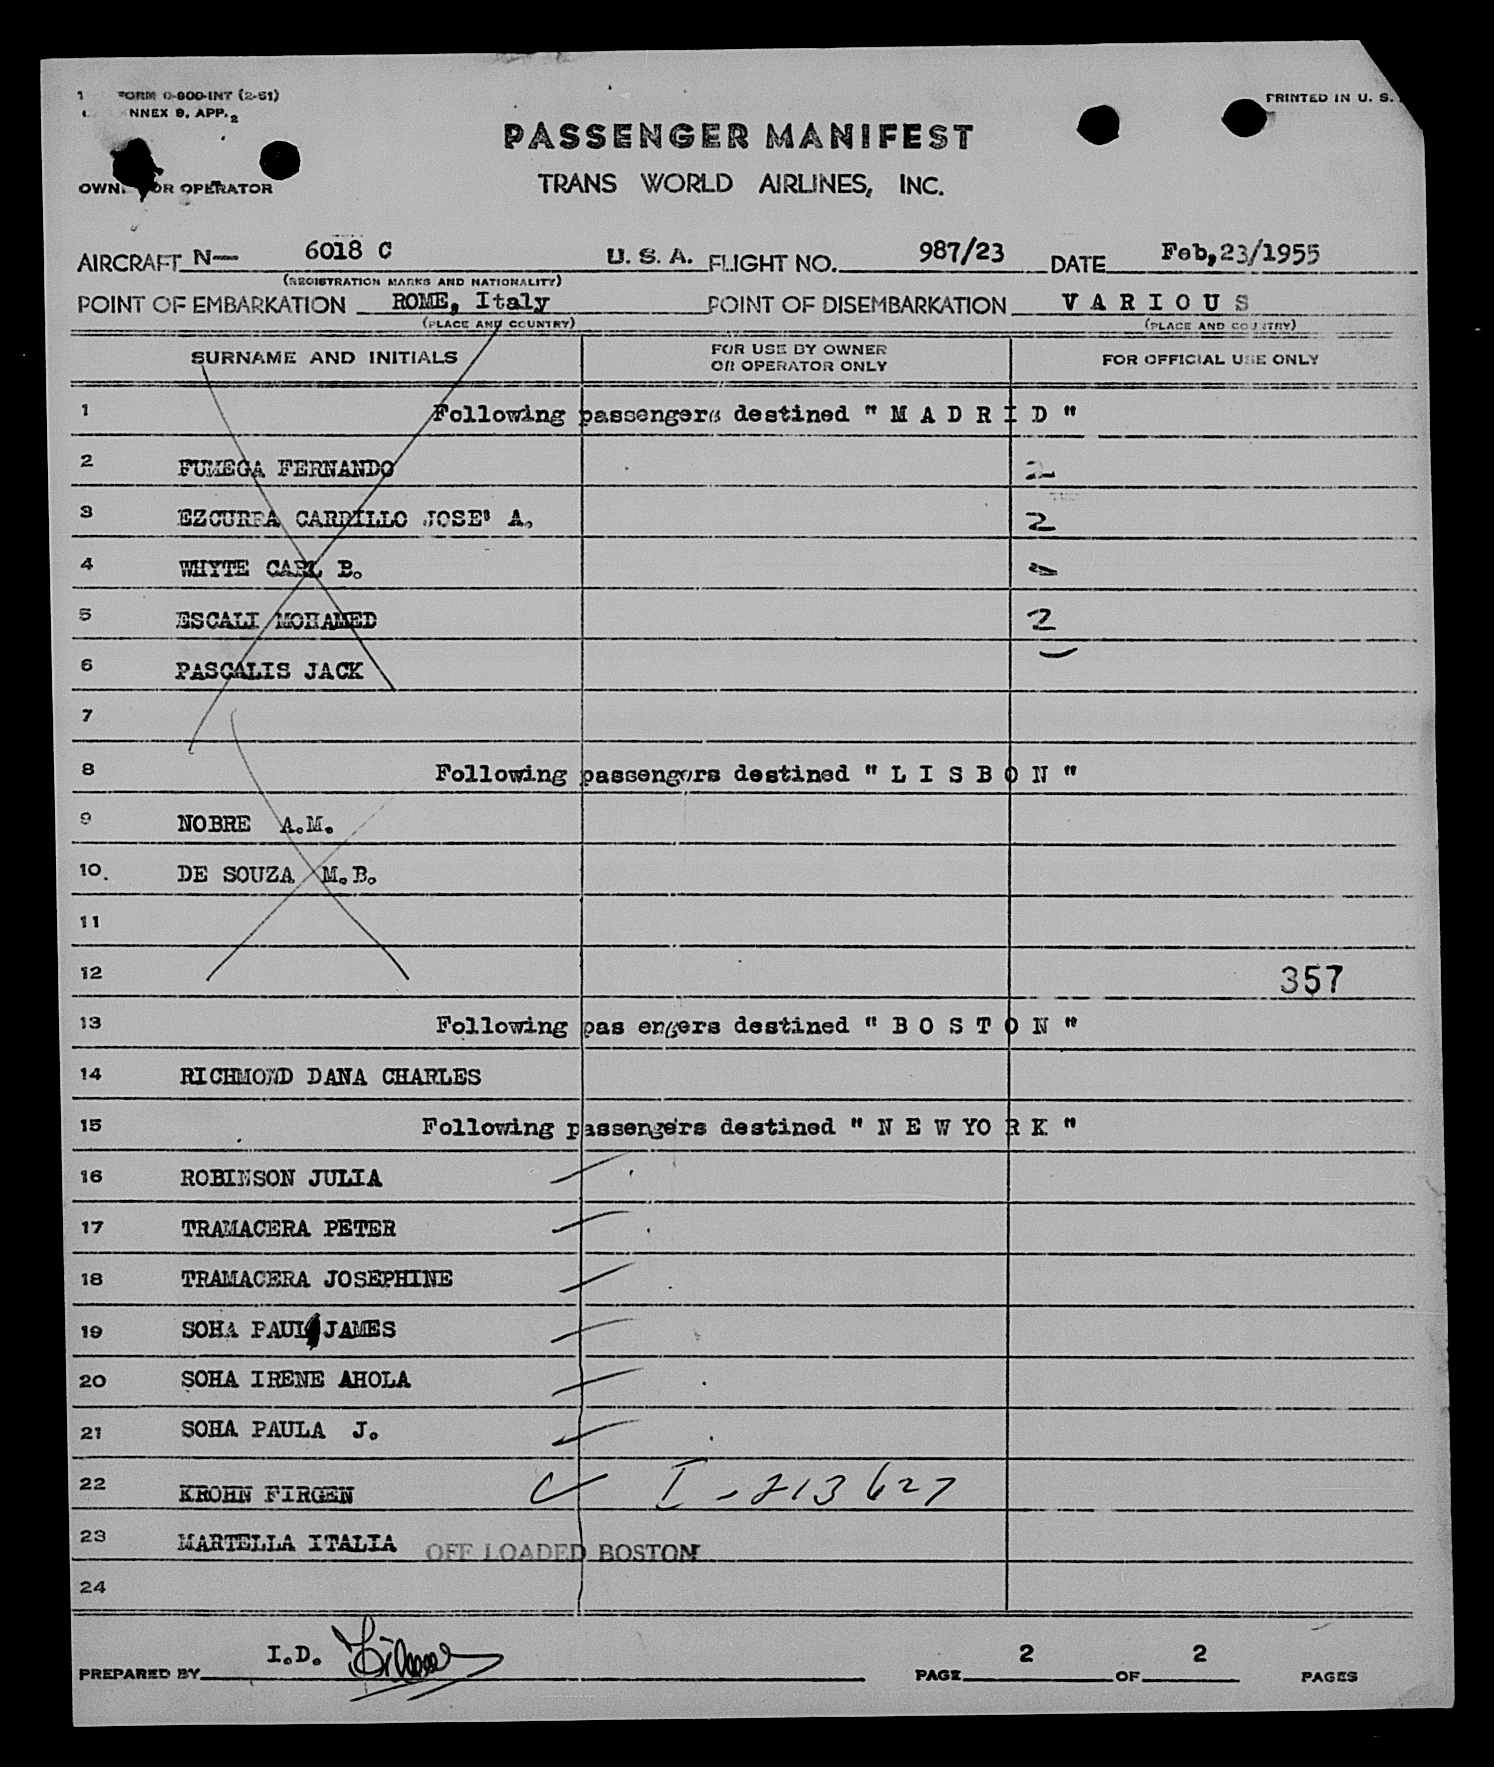 FORM O-800-INT (2-51)
PRINTED IN U. S.
NNEX 9, APP. 2
PASSENGER MANIFEST
OR OPERATOR
TRANS WORLD AIRLINES, INC.
AIRCRAFT N— 6018 C U. S. A. FLIGHT NO. 987/23 DATE Feb,23/1955
(REGISTRATION MARKS AND NATIONALITY)
POINT OF EMBARKATION ROME, Italy POINT OF DISEMBARKATION V A R I O U S
(PLACE AND COUNTRY) (PLACE AND COUNTRY)
SURNAME AND INITIALS FOR USE BY OWNER OR OPERATOR ONLY FOR OFFICIAL USE ONLY
1 Following passengers destined " M A D R I D "
2 FUMEGA FERNANDO 2
3 EZCURRA CARRILLO JOSE' A. 2
4 WHYTE CARL B.
5 ESCALI MOHAMED 2
6 PASCALIS JACK
7
8 Following passengers destined " L I S B O N "
9 NOBRE A.M.
10. DE SOUZA M.B.
11
12 357
13 Following pas engers destined " B O S T O N "
14 RICHMOND DANA CHARLES
15 Following passengers destined " N E W YO R K "
16 ROBINSON JULIA
17 TRAMACERA PETER
18 TRAMACERA JOSEPHINE
19 SOHA PAUL JAMES
20 SOHA IRENE AHOLA
21 SOHA PAULA J.
22 KROHN FIRGEN I - 213627
23 MARTELLA ITALIA OFF LOADED BOSTON
24
PREPARED BY I.D. PAGE 2 OF 2 PAGES